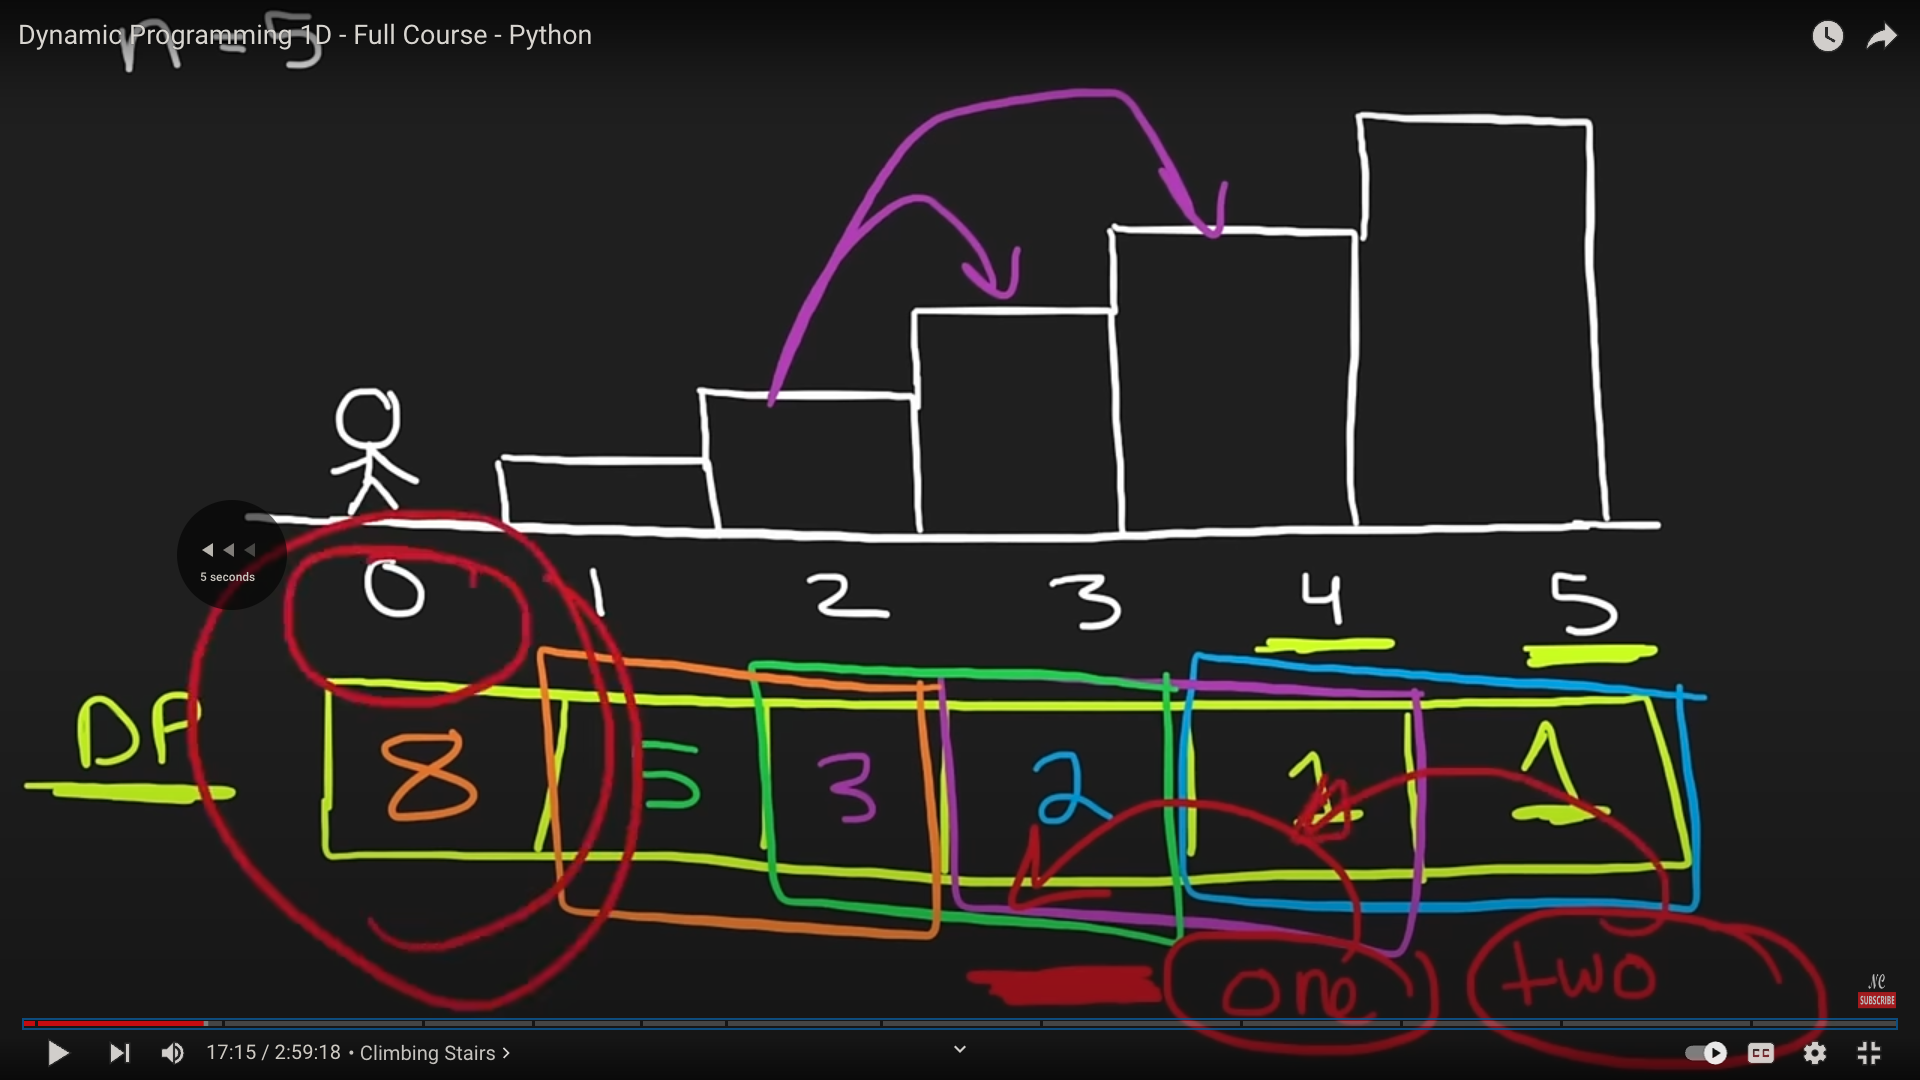 Dynamic Programming 1D - Full Course - Python
n = 5
5 seconds
0 1 2 3 4 5
DP
8 5 3 2 1 1
one two
NC
SUBSCRIBE
17:15 / 2:59:18 • Climbing Stairs >
CC